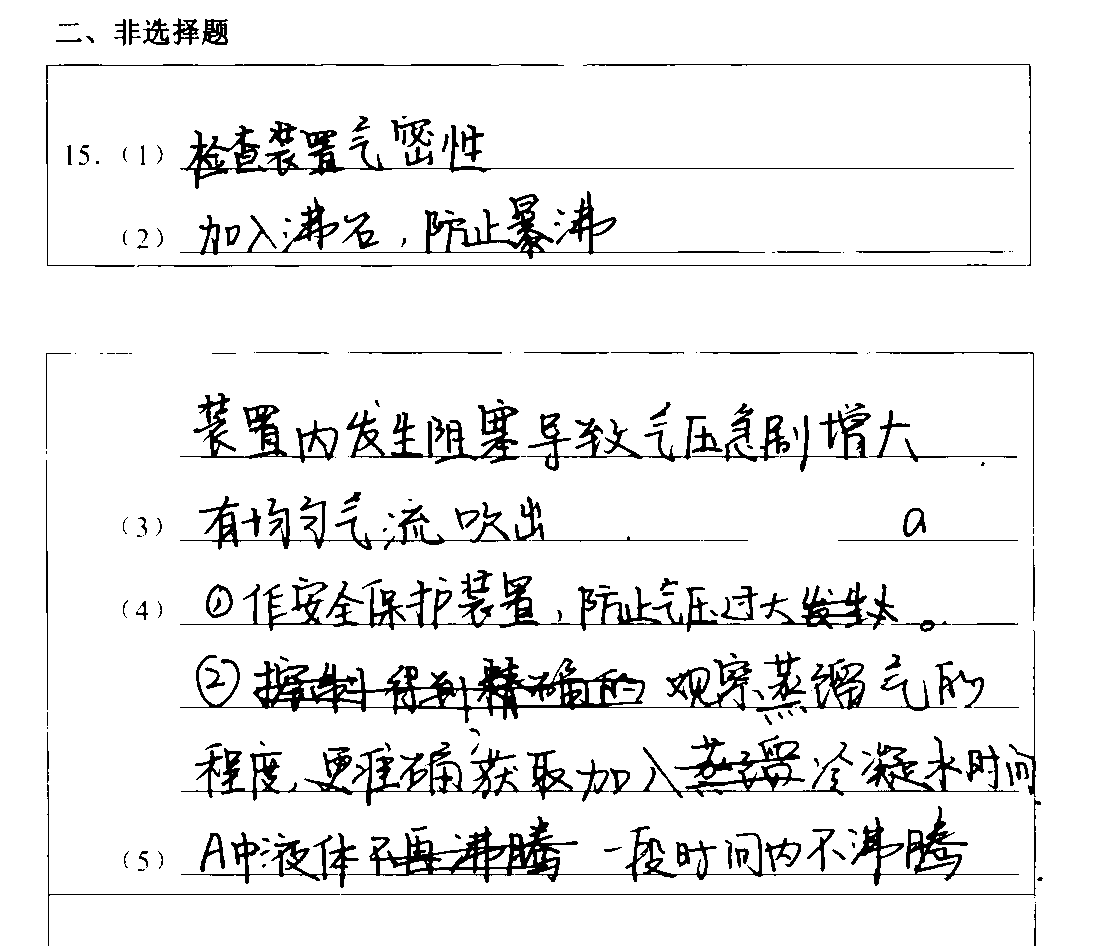 二、非选择题
15.（1）检查装置气密性
（2）加入沸石，防止暴沸
装置内发生阻塞导致气压急剧增大
（3）有均匀气流吹出 a
（4）①作安全保护装置，防止气压过大。
② 观察蒸馏气的
程度，更准确获取加入冷凝水时间
（5）A中液体 一段时间内不沸腾